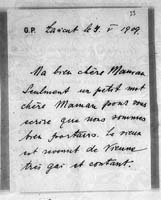 23
G.P. Lancut le 9. V 1909.
Ma bien chère Maman
Seulement un petit mot
chère Maman pour vous
écrire que nous sommes
bien portants. Le vieux
est revenu de Vienne
très gai et content.